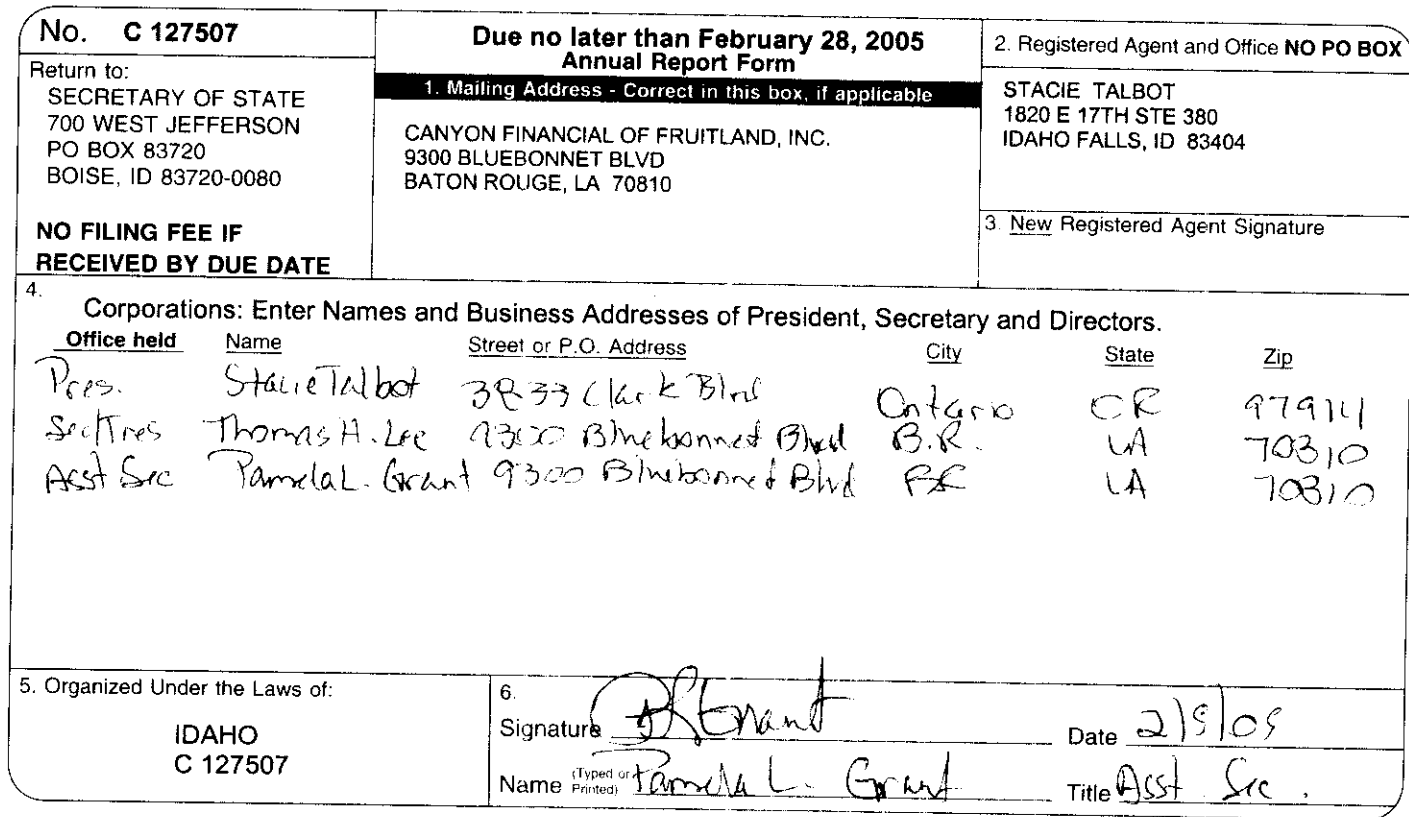 No. C 127507
Return to:
SECRETARY OF STATE
700 WEST JEFFERSON
PO BOX 83720
BOISE, ID 83720-0080
NO FILING FEE IF
RECEIVED BY DUE DATE
Due no later than February 28, 2005
Annual Report Form
1. Mailing Address - Correct in this box, if applicable
CANYON FINANCIAL OF FRUITLAND, INC.
9300 BLUEBONNET BLVD
BATON ROUGE, LA 70810
2. Registered Agent and Office NO PO BOX
STACIE TALBOT
1820 E 17TH STE 380
IDAHO FALLS, ID 83404
3. New Registered Agent Signature
4.
Corporations: Enter Names and Business Addresses of President, Secretary and Directors.
Office held Name Street or P.O. Address City State Zip
Pres. Stacie Talbot Clark Blvd Ontario OR 97914
Sec/Tres Thomas H. Lee 9300 Bluebonnet Blvd B.R. LA 70810
Asst Sec Pamela L. Grant 9300 Bluebonnet Blvd BR LA 70810
5. Organized Under the Laws of:
IDAHO
C 127507
6.
Signature PLGrant Date
Name (Typed or Printed) Pamela L. Grant Title Asst. Sec.